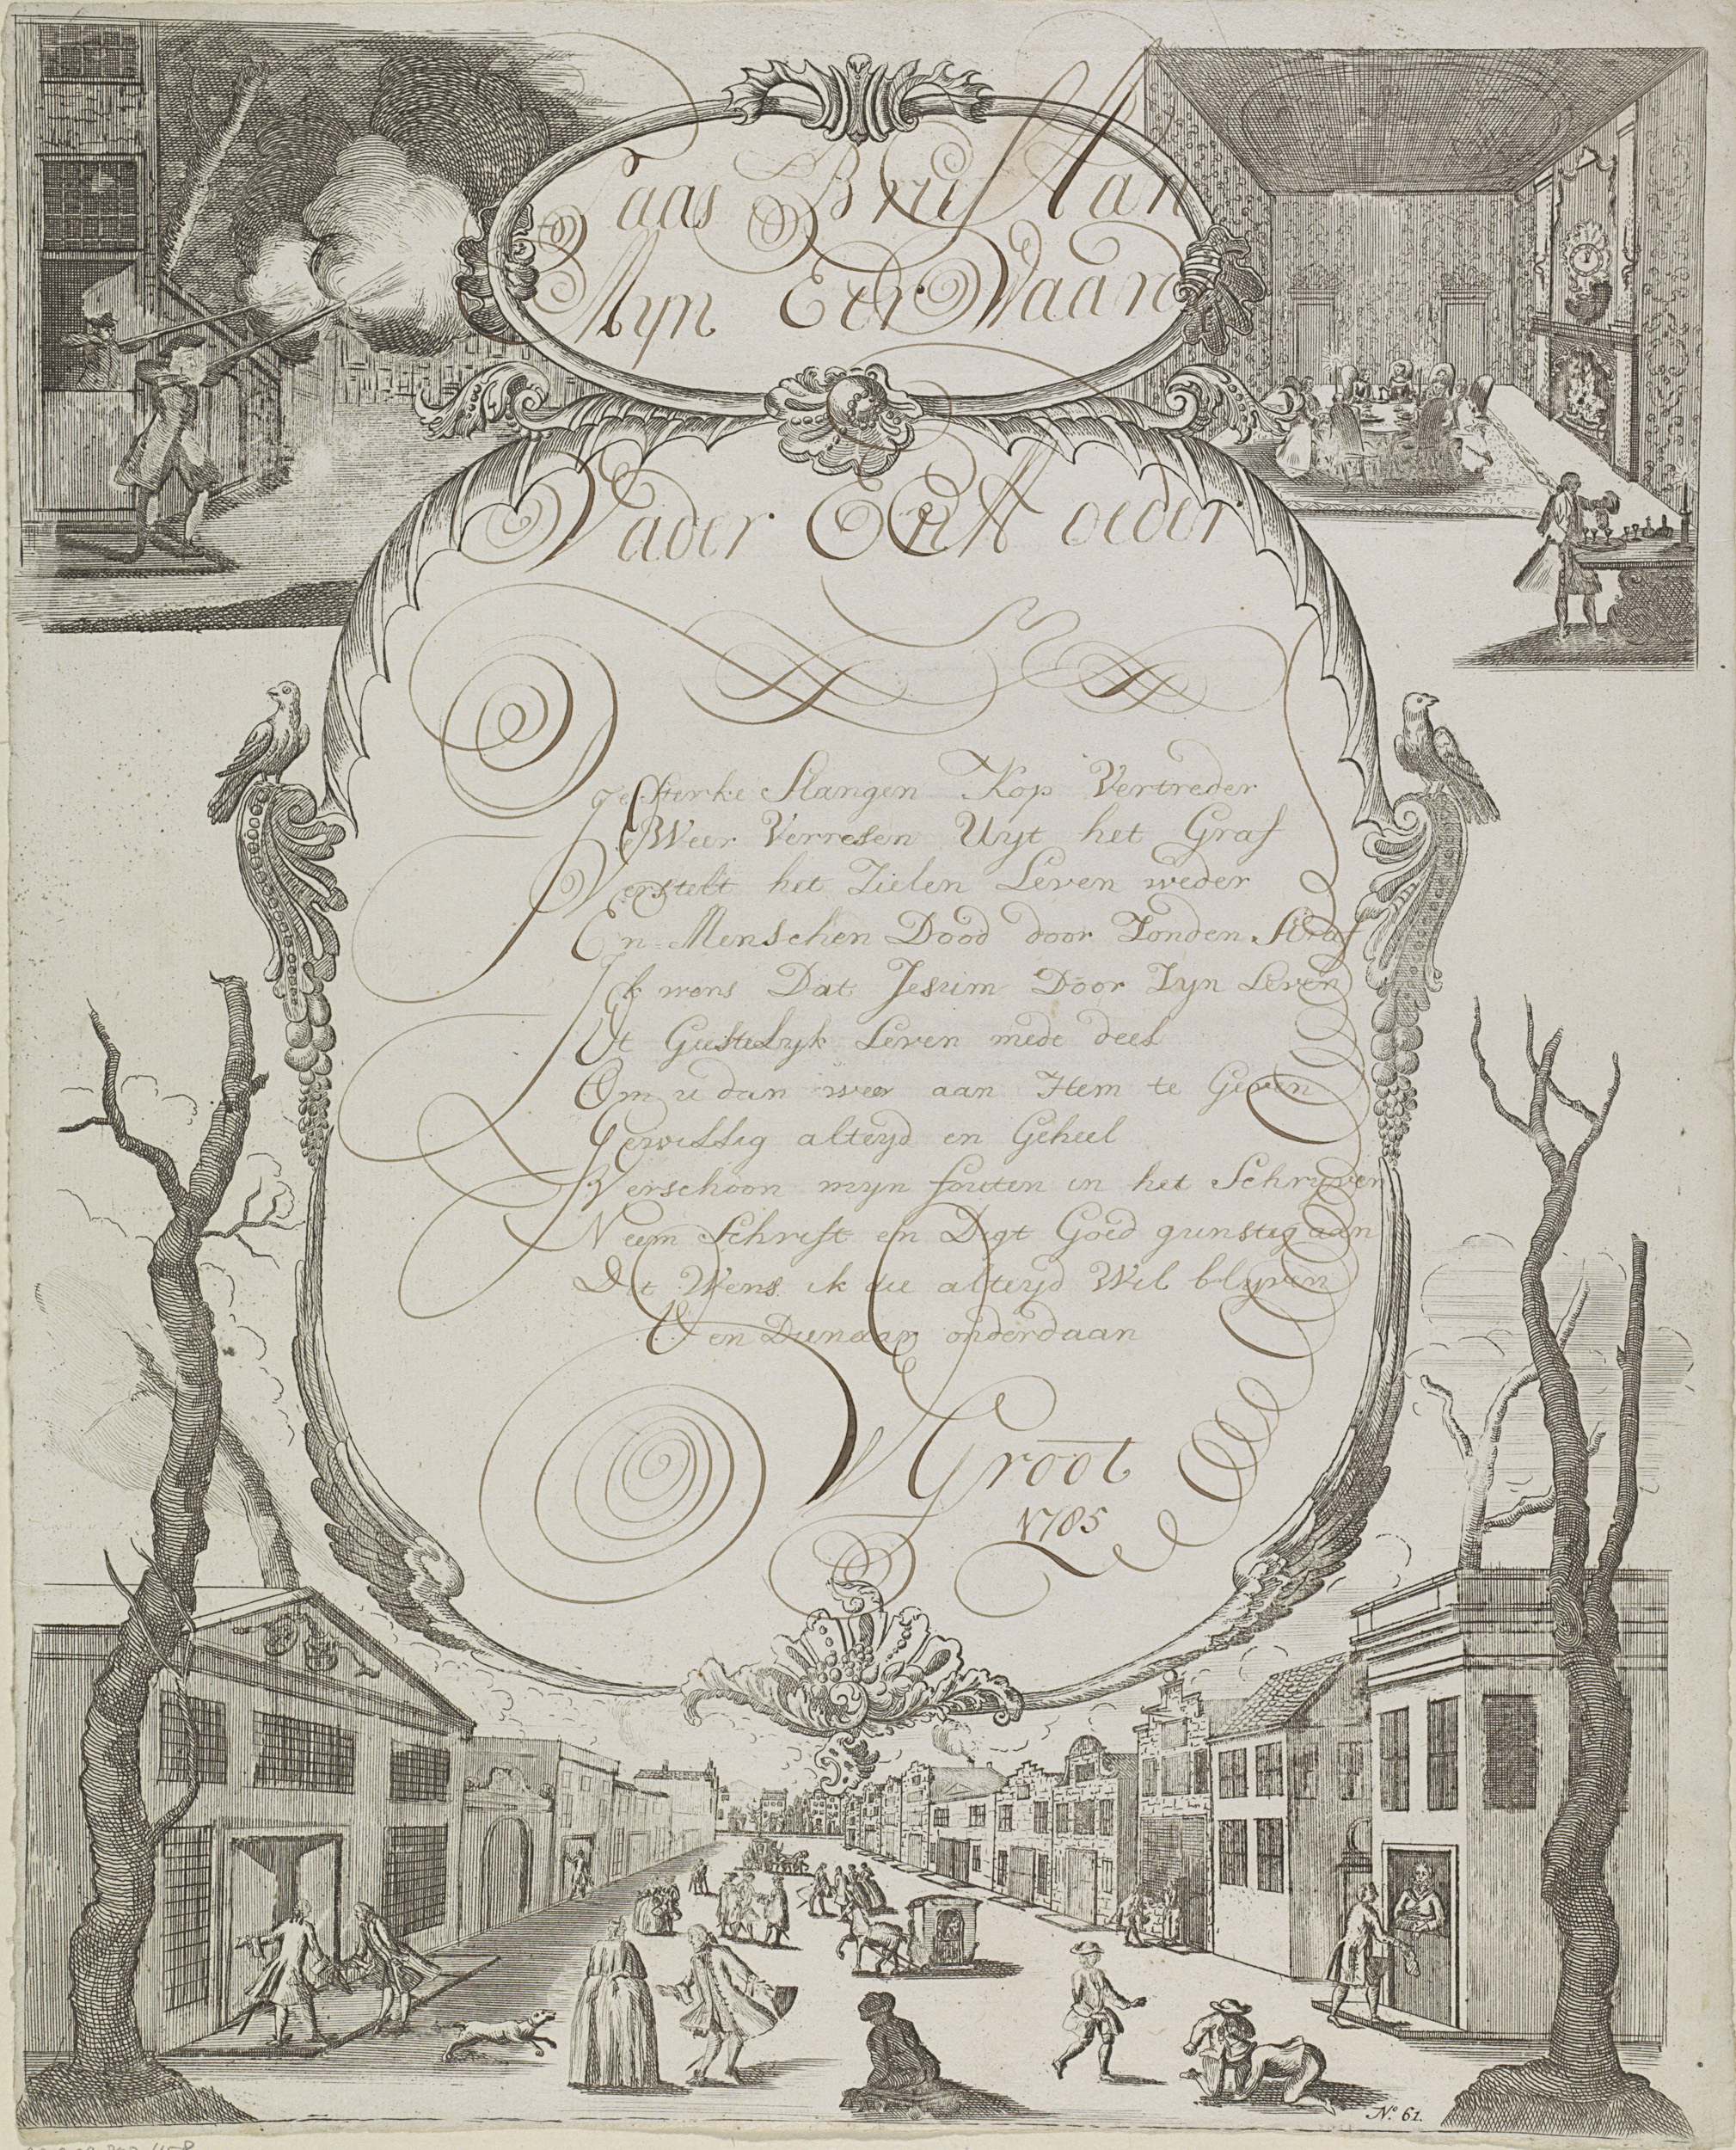 Paas Brief Aan
Myn Eer Waarde
Vader En Moeder
Je Sterke Slangen Kop Vertreder
Weer Verresen Uyt het Graf
Verstelt het Zielen Leven weder
En Menschen Dood door Zonden Straf
Ik wens Dat Jesum Door Zyn Leven
Ut Geestelyk Leven mede deel
Om u dan weer aan Hem te Geven
Gewillig alteyd en Geheel
Verschoon myn fouten in het Schryven
Neem Schrift en Digt Goed gunstig aan
Dit Wens ik die alteyd Wil blyven
U en Dienaar onderdaan
Groot
1785
No. 61.